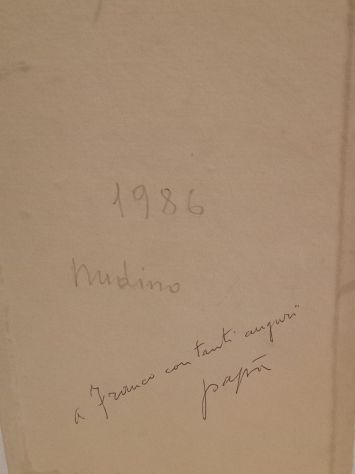 1986
Nudino
a Franco con tanti auguri
papà